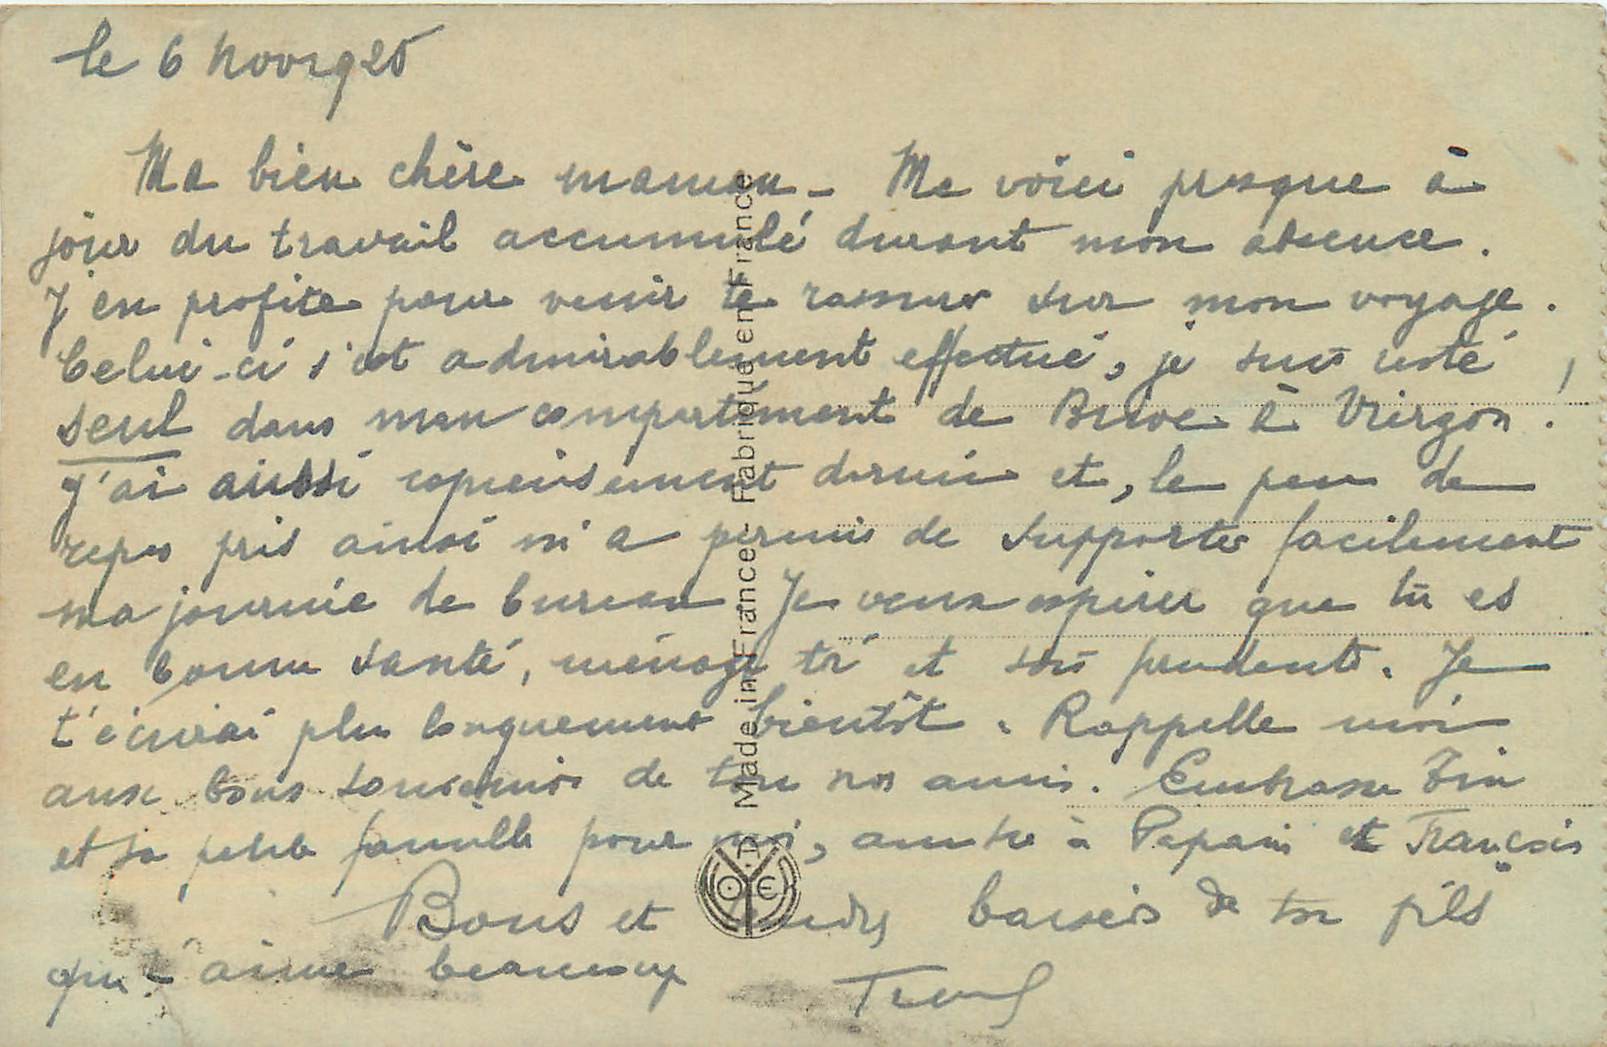 le 6 nov 1925
Ma bien chère maman - Me voici presque à
jour du travail accumulé durant mon absence.
J'en profite pour venir te rassurer sur mon voyage.
Celui-ci s'est admirablement effectué, je suis resté
seul dans mon compartiment de Brive à Vierzon !
J'ai aussi copieusement dormi et, le peu de
repos pris ainsi m'a permis de supporter facilement
ma journée de bureau Je veux espérer que tu es
en bonne santé, ménage toi et sois prudente. Je
t'écrirai plus longuement bientôt. Rappelle moi
aux bons souvenirs de tous nos amis. Embrasse
et sa petite famille pour moi, à et François
Bons et tendres baisers de ton fils
qui t'aime beaucoup
Made in France - Fabriqué en France